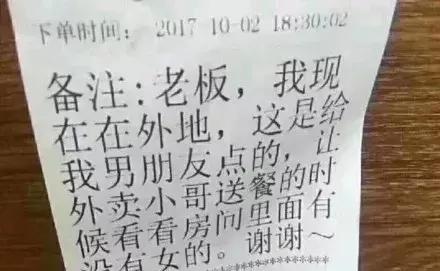 下单时间: 2017 10-02 18:30:02
备注:老板,我现
在在外地,这是给
我男朋友点的,让
外卖小哥送餐的时
候看看房问里面有
没有女的。谢谢~
******************